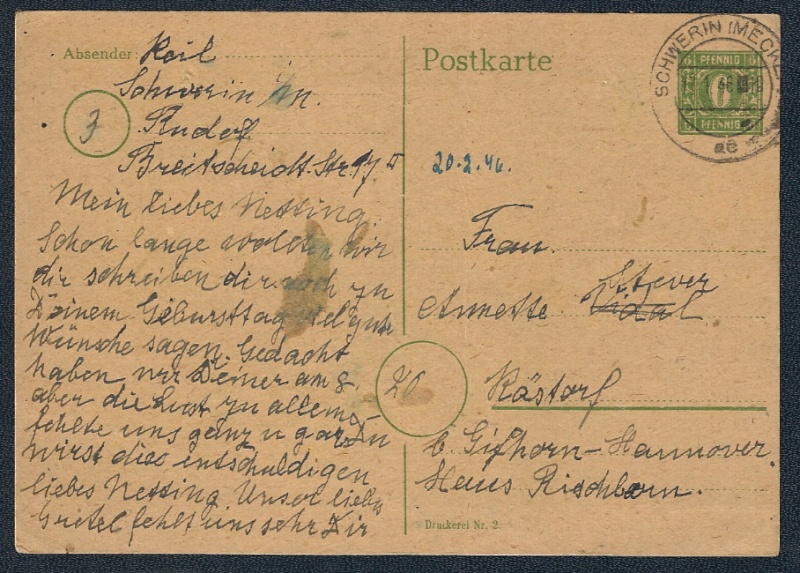 Absender: Keil
Schwerin i/M.
3
Rudolf
Breitscheidt-Str. 17 II
Mein liebes Netting.
Schon lange wollten wir
dir schreiben dir noch zu
Deinem Geburtstag viel gute
Wünsche sagen. Gedacht
haben wir Deiner am 8.
aber die Lust zu allem
fehlte uns ganz u gar. Du
wirst dies entschuldigen
liebes Netting Unser liebe
Gretel fehlt uns sehr Dir
Postkarte
SCHWERIN (MECKL
PFENNIG
6
PFENNIG
ae
20.2.46.
Frau.
Stever
Annette Vidal
20
Rästorf
b. Gifhorn-Hannover.
Haus Rischborn.
Druckerei Nr. 2.